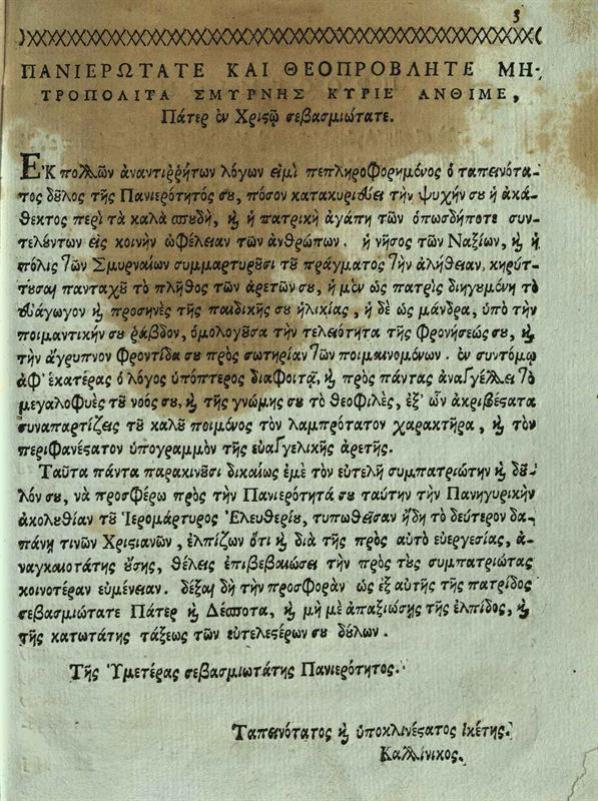 3
ΠΑΝΙΕΡΩΤΑΤΕ ΚΑΙ ΘΕΟΠΡΟΒΛΗΤΕ ΜΗ-
ΤΡΟΠΟΛΙΤΑ ΣΜΥΡΝΗΣ ΚΥΡΙΕ ΑΝΘΙΜΕ,
Πάτερ ἐν Χριϛῷ σεβασμιώτατε.
Ἐκ πολλῶν ἀναντιῤῥήτων λόγων εἰμὶ πεπληροφορημένος ὁ ταπεινότα-
τος δȣ͂λος τῆς Πανιερότητός σȣ, πόσον κατακυριεύει τὴν ψυχήν σȣ ἡ ἀκά-
θεκτος περὶ τὰ καλὰ σπȣδὴ, ϗ ἡ πατρικὴ ἀγάπη τῶν ὁπωσδήποτε συν-
τελȣ́ντων εἰς κοινὴν ὠφέλειαν τῶν ἀνθρώπων. ἡ νῆσος τῶν Ναξίων, ϗ ἡ
πόλις τῶν Σμυρναίων συμμαρτυρȣ͂σι τȣ͂ πράγματος τὴν ἀλήθειαν, κηρύτ-
τȣσαι πανταχȣ͂ τὸ πλῆθος τῶν ἀρετῶν σȣ, ἡ μὲν ὡς πατρὶς διηγȣμένη τὸ
εὐάγωγον ϗ προσηνὲς τῆς παιδικῆς σȣ ἡλικίας, ἡ δὲ ὡς μάνδρα, ὑπὸ τὴν
ποιμαντικήν σȣ ῥάβδον, ὁμολογȣ͂σα τὴν τελειότητα τῆς φρονήσεώς σȣ, ϗ
τὴν ἄγρυπνον φροντίδα σȣ πρὸς σωτηρίαν τῶν ποιμαινομένων. ἐν συντόμῳ
ἀφ' ἑκατέρας ὁ λόγος ὑπόπτερος διαφοιτᾷ, ϗ πρὸς πάντας ἀναγγέλλει τὸ
μεγαλοφυὲς τȣ͂ νοός σȣ, ϗ τῆς γνώμης σȣ τὸ θεοφιλὲς, ἐξ' ὧν ἀκριβέϛατα
συναπαρτίζεις τȣ͂ καλȣ͂ ποιμένος τὸν λαμπρότατον χαρακτῆρα, ϗ τὸν
περιφανέϛατον ὑπογραμμὸν τῆς εὐαγγελικῆς ἀρετῆς.
Ταῦτα πάντα παρακινȣ͂σι δικαίως ἐμὲ τὸν εὐτελῆ συμπατριώτην ϗ δȣ͂-
λόν σȣ, νὰ προσφέρω πρὸς τὴν Πανιερότητά σȣ ταύτην τὴν Πανηγυρικὴν
ἀκολȣθίαν τȣ͂ Ἱερομάρτυρος Ἐλευθερίȣ, τυπωθεῖσαν ἤδη τὸ δεύτερον δα-
πάνῃ τινῶν Χριϛιανῶν, ἐλπίζων ὅτι ϗ διὰ τῆς πρὸς αὐτὸ εὐεργεσίας, ἀ-
ναγκαιοτάτης ȣ̓́σης, θέλεις ἐπιβεβαιώσει τὴν πρὸς τȣς συμπατριώτας
κοινοτέραν εὐμένειαν. δέξαι δὴ τὴν προσφορὰν ὡς ἐξ αὐτῆς τῆς πατρίδος
σεβασμιώτατε Πάτερ ϗ Δέσποτα, ϗ μὴ μὲ ἀπαξιώσῃς τῆς ἐλπίδος, ϗ
τῆς κατωτάτης τάξεως τῶν εὐτελεϛέρων σȣ δȣ́λων.
Τῆς Ὑμετέρας σεβασμιωτάτης Πανιερότητος.
Ταπεινότατος ϗ ὑποκλινέϛατος ἱκέτης.
Καλλίνικος.